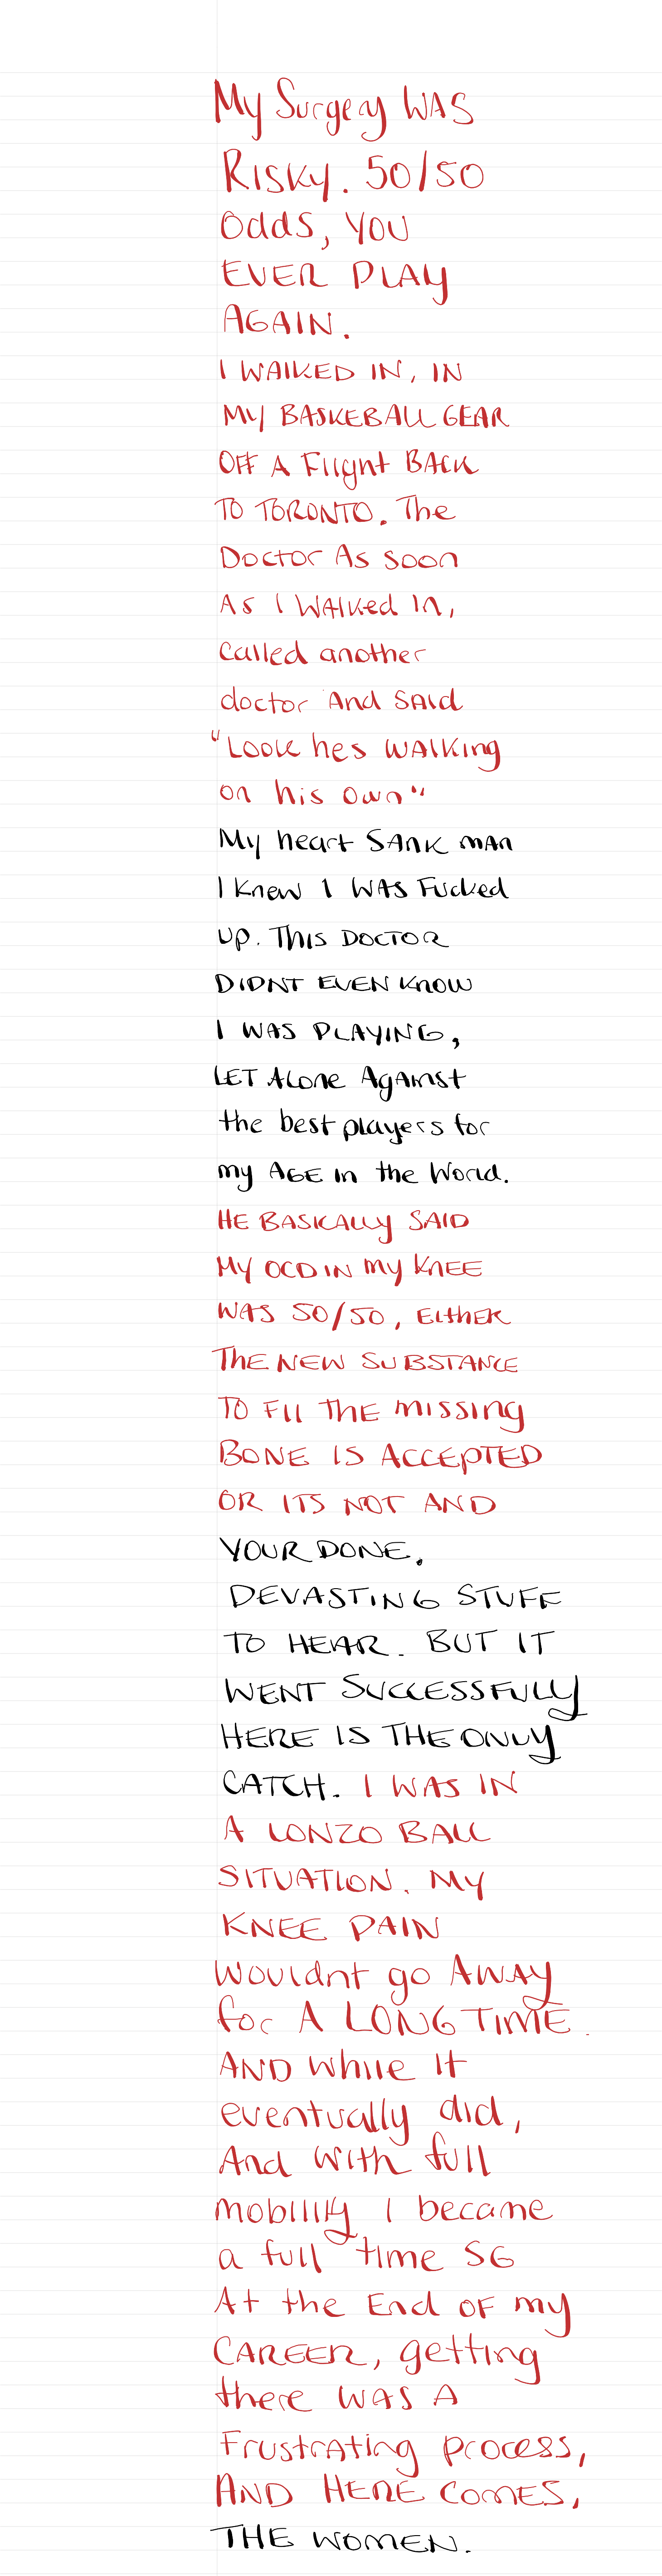 My Surgery WAS
RISKY. 50/50
Odds, YOU
EVER PLAY
AGAIN.
I WALKED IN, IN
MY BASKEBALL GEAR
OFF A Flight BACK
TO TORONTO. The
Doctor As soon
As I WAlked In,
Called another
doctor And SAId
"Look hes WAlking
on his own"
My heart SANK MAN
I Knew I WAS Fucked
up. This DOCTOR
DIDNT EVEN Know
I WAS PLAYING,
LET Alone AgAinst
the best players for
my AGE In the World.
HE BASICALLY SAID
MY OCD IN my KNEE
WAS 50/50, EITHER
THE NEW SUBSTANCE
TO FIl THE missing
BONE IS ACCEPTED
OR ITS NOT AND
YOUR DONE.
DEVASTING STUFF
TO HEAR. BUT IT
WENT SUCCESSFULLY
HERE IS THE ONLY
CATCH. I WAS IN
A LONZO BALL
SITUATION. MY
KNEE PAIN
Wouldnt go AWAY
for A LONG TIME.
AND While It
eventually did,
And With full
mobility I became
a full time SG
At the End OF my
CAREER, getting
there WAS A
Frustrating process,
AND HERE COMES,
THE WOMEN.